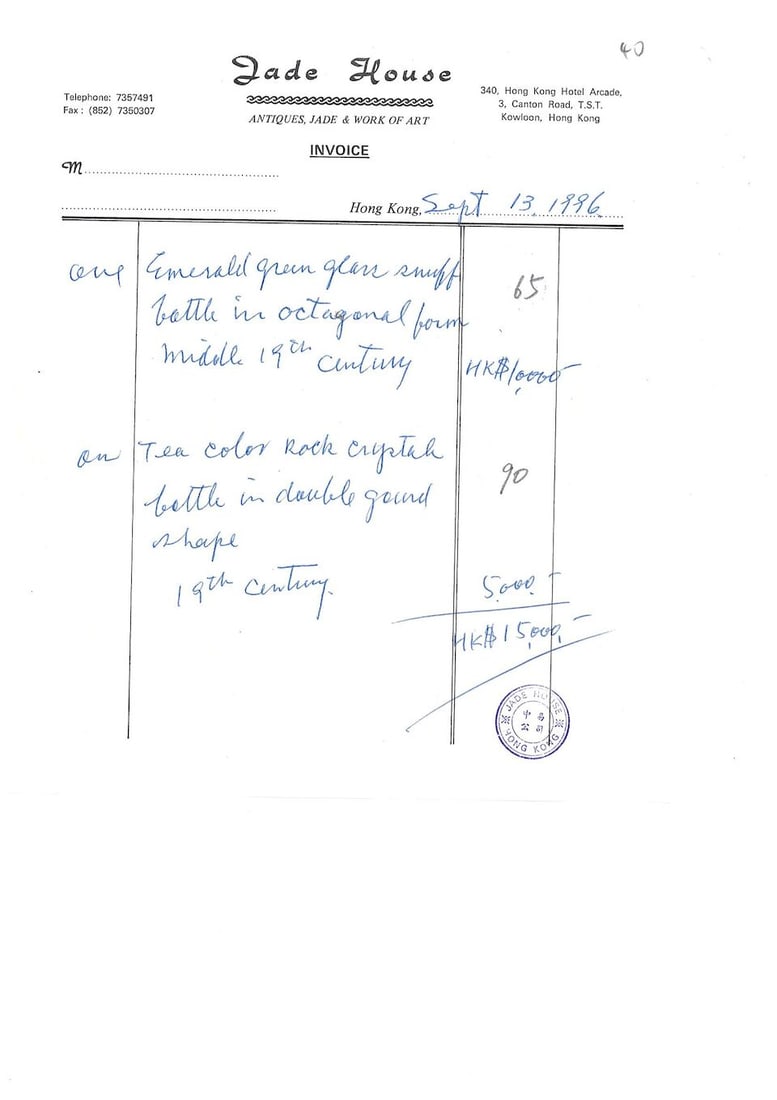 40
Jade House
Telephone: 7357491
Fax : (852) 7350307
ANTIQUES, JADE & WORK OF ART
340, Hong Kong Hotel Arcade,
3, Canton Road, T.S.T.
Kowloon, Hong Kong
INVOICE
M
Hong Kong, Sept 13, 1996
one Emerald green glass snuff
65
bottle in octagonal form
middle 19th century HK$10,000-
on Tea color Rock crystal
90
bottle in double gourd
shape
19th century.
5,000.-
HK$15,000,-
JADE HOUSE
公司
HONG KONG